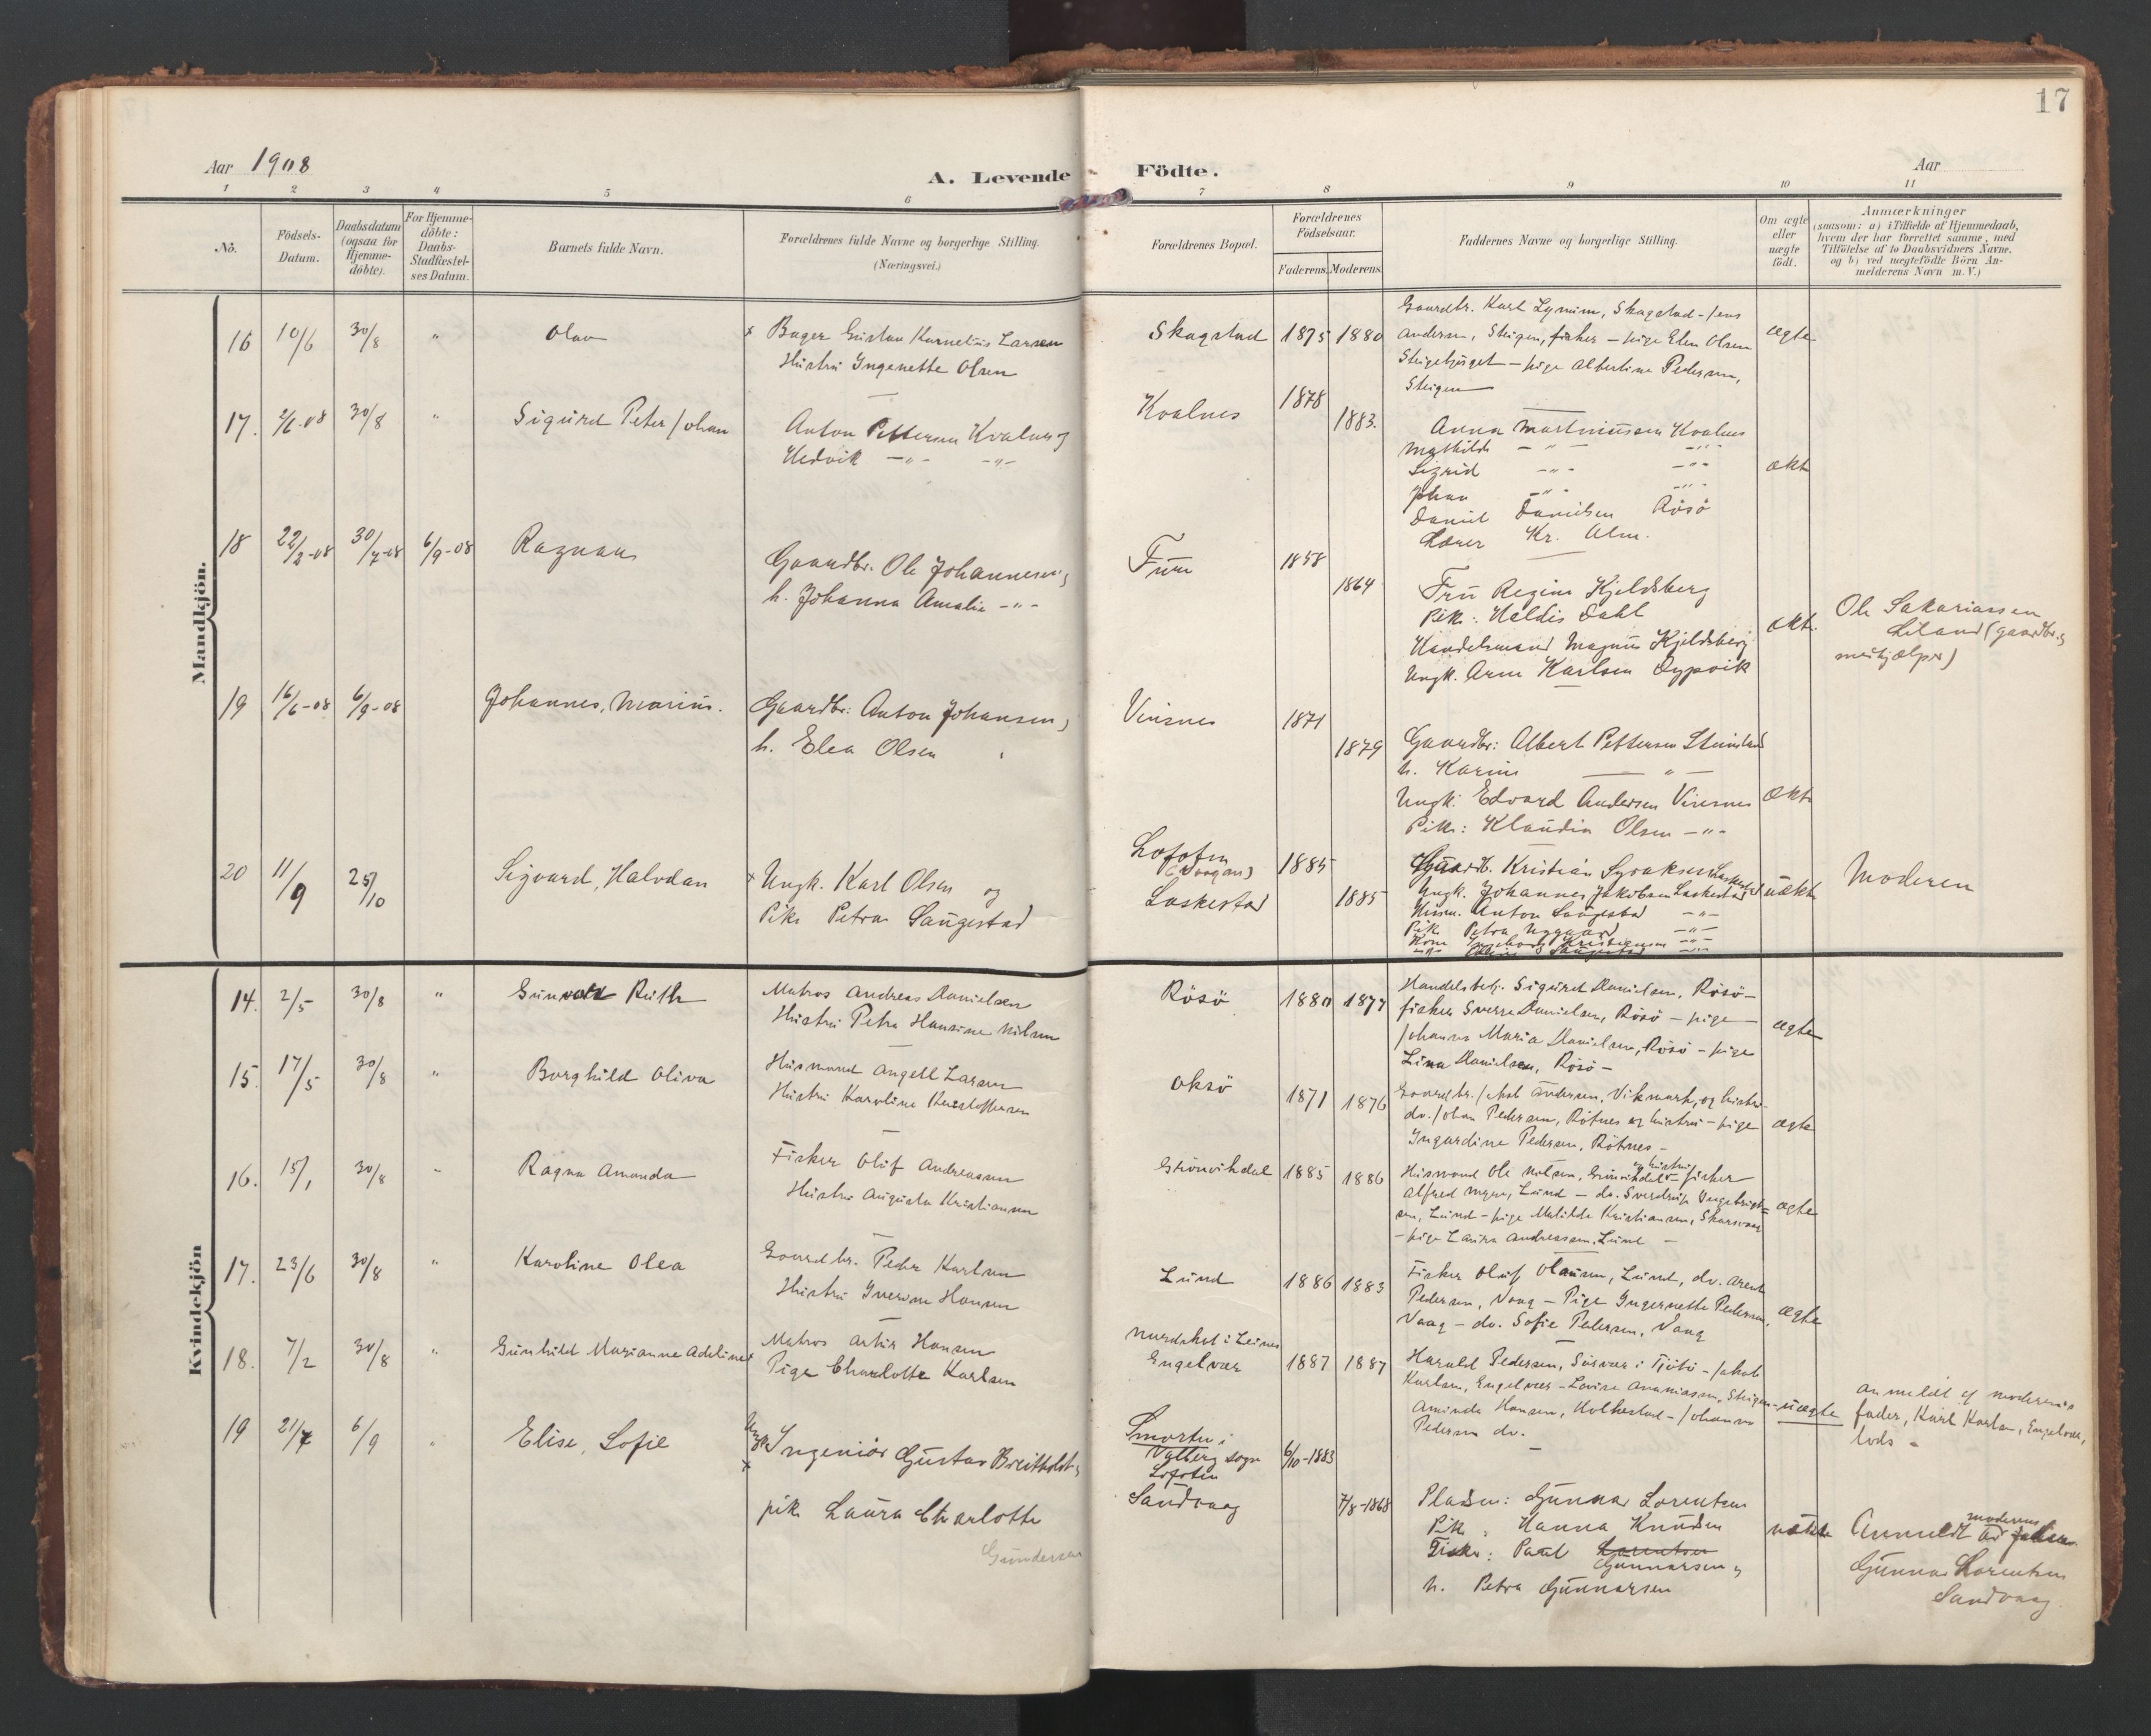 17
Aar 1908
A. Levende Födte.
Aar
1 2 3 4 5 6 7 8 9 10 11
No.
Födsels-Datum.
Daabsdatum (ogsaa for Hjemme-döbte).
For Hjemme-döbte: Daabs-Stadfæstel-ses Datum.
Barnets fulde Navn.
Forældrenes fulde Navne og borgerlige Stilling.
(Næringsvei.)
Forældrenes Bopæl.
Forældrenes Födselsaar.
Faderens. Moderens.
Faddernes Navne og borgerlige Stilling.
Om ægte eller uægte født.
Anmærkninger
(saasom: a) i Tilfælde af Hjemmedaab,
hvem der har forrettet samme, med
Tilföielse af to Daabsvidners Navne.
og b) ved uægtefödte Börn An-
melderens Navn m. V.)
Mandkjön.
16 10/6 30/8 " Olav
x Bager Gustav Kornelius Larsen
Hustru Ingenette Olsen
Skagstad 1875 1880
Gaardbr. Karl Skagstad - Jens
Andersen, Steigen, fisker - pige Elen Olsen
Steigebjerget - pige Albertine Pedersen,
Steigen
ægte
17. 2/6-08 30/8 " Sigurd Peter Johan
Anton Pettersen Kvalnes og
Hedvik -"- -"-
Kvalnes 1878 1883.
Anna Martinussen Kvalnes
Mathilde -"- -"-
Sigrid -"- -"-
Johan -"- -"-
Daniel Danielsen Rösö
Lærer Kr. Alm.
ekte
18 22/2-08 30/7-08 6/9-08 Ragnar
Gaardbr. Ole Johannesen og
h. Johanna Amalie -"-
Fure 1858 1864
Fru Regine Kjeldsberg
Pike: Haldis Dahl
Handelsmand Magnus Kjeldsberg
Ungk. Arne Karlsen Dypvik
ekte.
Ole Sakariassen
Leland (gaardbr. og
medhjælper)
19 16/6-08 6/9-08 Johannes, Marius.
Gaardbr: Anton Johansen og
h. Elea Olsen
Vinsnes 1871 1879
Gaardbr: Albert Pettersen Steinstad
h. Karine -"-
Ungk: Edvard Andersen Vinsnes
Pike: Klaudia Olsen -"-
Ekte
20 11/9 25/10 Sigvard, Halvdan
x Ungk. Karl Olsen og
Pike Petra Saugestad
Lofoten
(Vaagan)
Laskestad
1885 1885
Gaardb. Kristian Laskestad
Ungk. Johannes Jakobsen Laskestad
Anton Saugestad -"-
Pike Petra -"-
Kone Ingeborg Kristensen -"-
-"- Saugestad -"-
uekte
Moderen
Kvindekjön
14. 2/5 30/8 " Gunvor Ruth
Matros Andreas Danielsen
Hustru Petra Hansine Nilsen
Rösö 1880 1877
Handelsbetj. Sigurd Danielsen, Rösö-
fisker Sverre Danielsen, Rösö - pige
Johanna Maria Danielsen, Rösö - pige
Lina Danielsen, Rösö -
ægte
15. 17/5 30/8 " Borghild Oliva
Husmand Angell Larsen
Hustru Karoline Kristoffersen
Oksö 1871 1876
Gaardbr. Jakob Andersen, Vikmark, og hustru-
do. Johan Pedersen, Rötnes og hustru - pige
Ingardine Pedersen, Rötnes -
ægte
16. 15/1 30/8 " Ragna Amanda
Fisker Oluf Andreassen
Hustru Augusta Kristiansen
Grönvikdal 1885 1886
Husmand Ole Nilsen, Grönvikdal og hustru - fisker
Alfred Myre, Lund - do. Sverdrup Ingebrigt-
sen, Lund - pige Matilde Kristiansen, Skarsvaag
- pige Laura Andreassen, Lund -
ægte
17. 23/6 30/8 " Karoline Olea
Gaardbr. Peder Karlsen
Hustru Hansen
Lund 1886 1883
Fisker Oluf Olausen, Lund, do. Arent
Pedersen, Vaag - Pige Ingernette Pedersen,
Vaag - do. Sofie Pedersen, Vaag
ægte
18. 7/2 30/8 " Gunhild Marianne Adeline
x Matros Artur Hansen
Pige Charlotte Karlsen
Nordskot i Leines
Engelvær 1887 1887
Harald Pedersen, Sörvær i Tjötö - Jakob
Karlsen, Engelvær - Lovise Ananiassen, Steigen -
Aminda Hansen, Holkestad - Johanna
Pedersen do.
uægte
Anmeldt af moderens
fader, Karl Karlsen, Engelvær,
lods -
19 21/7 6/9 " Elise, Sofie
Ungk. x Ingeniør Gustav Breitholtz
pike Laura Charlotte
Gundersen
Smorten i
Valberg sogn
Lofoten
Sandvaag
6/10-1883 7/8-1868
Pladsm: Gunnar Lorentsen
Pike: Hanna Knudsen
Fisker: Paul Lorentsen
Gunnarsen og
h. Petra Gunnarsen
uekte
Anmeldt av moderens
Gunnar Lorentsen
Sandvaag.